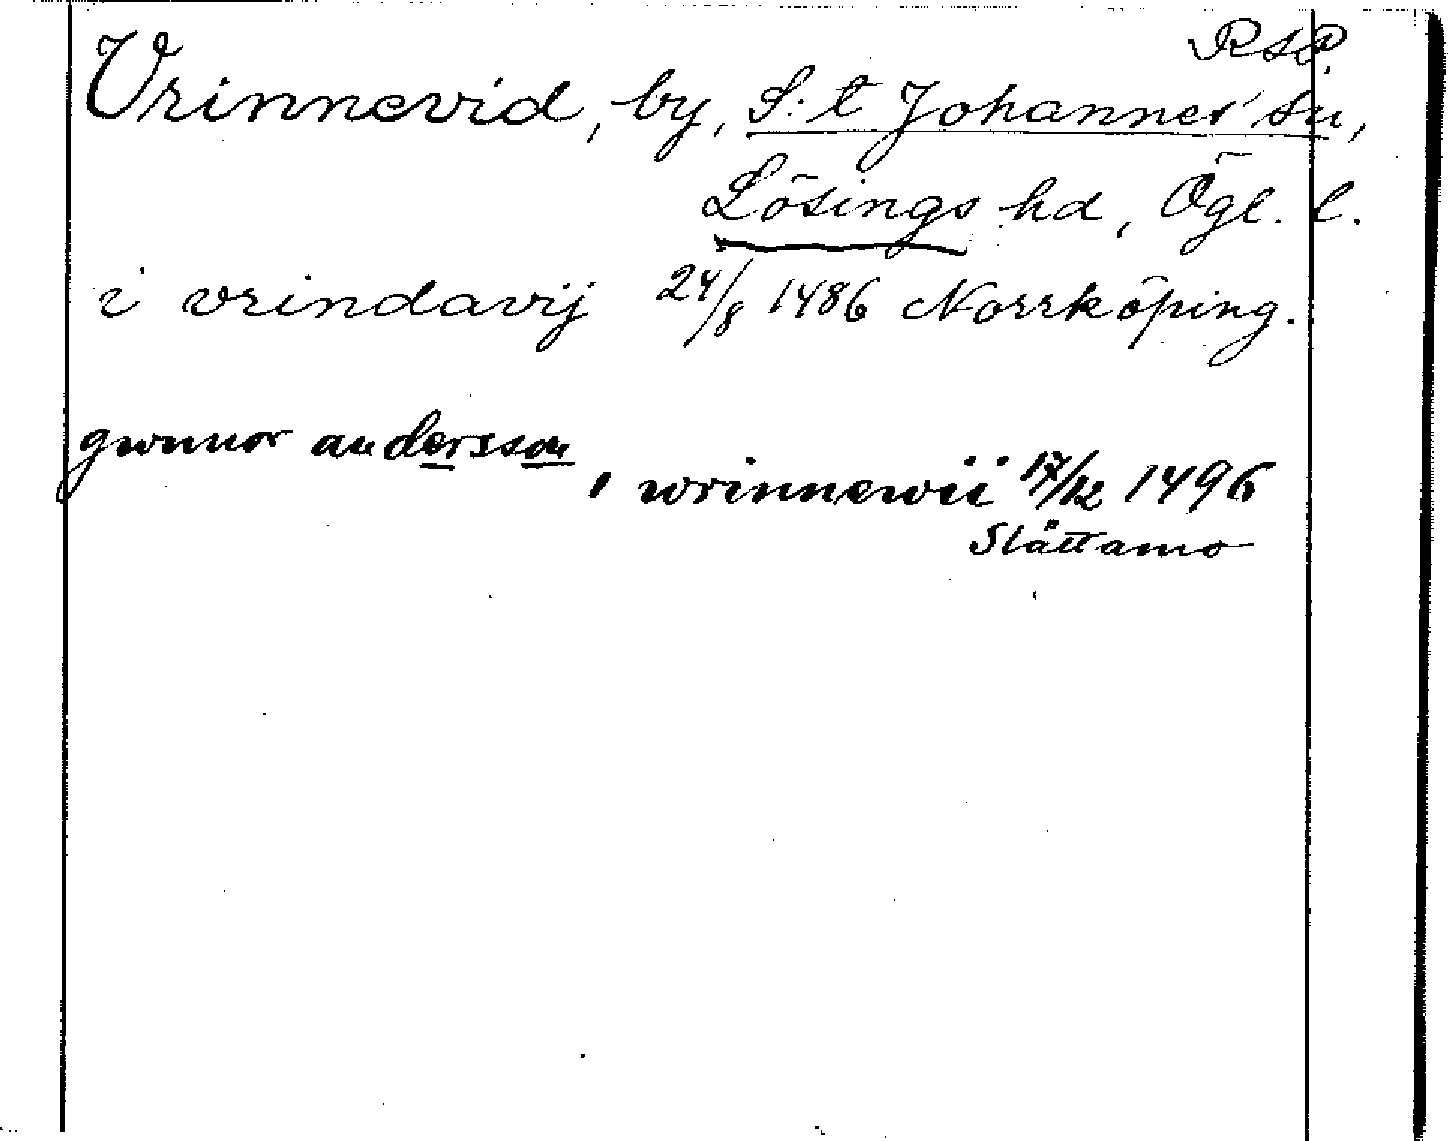 RAP.
Vrinnevid, by, S:t Johannes' sn,
Lösings hd, Ögl. l.
i vrindavij 24/8 1486 Norrköping.
gwnnor andersson
i wrinnewii 17/12 1496
Slättamo